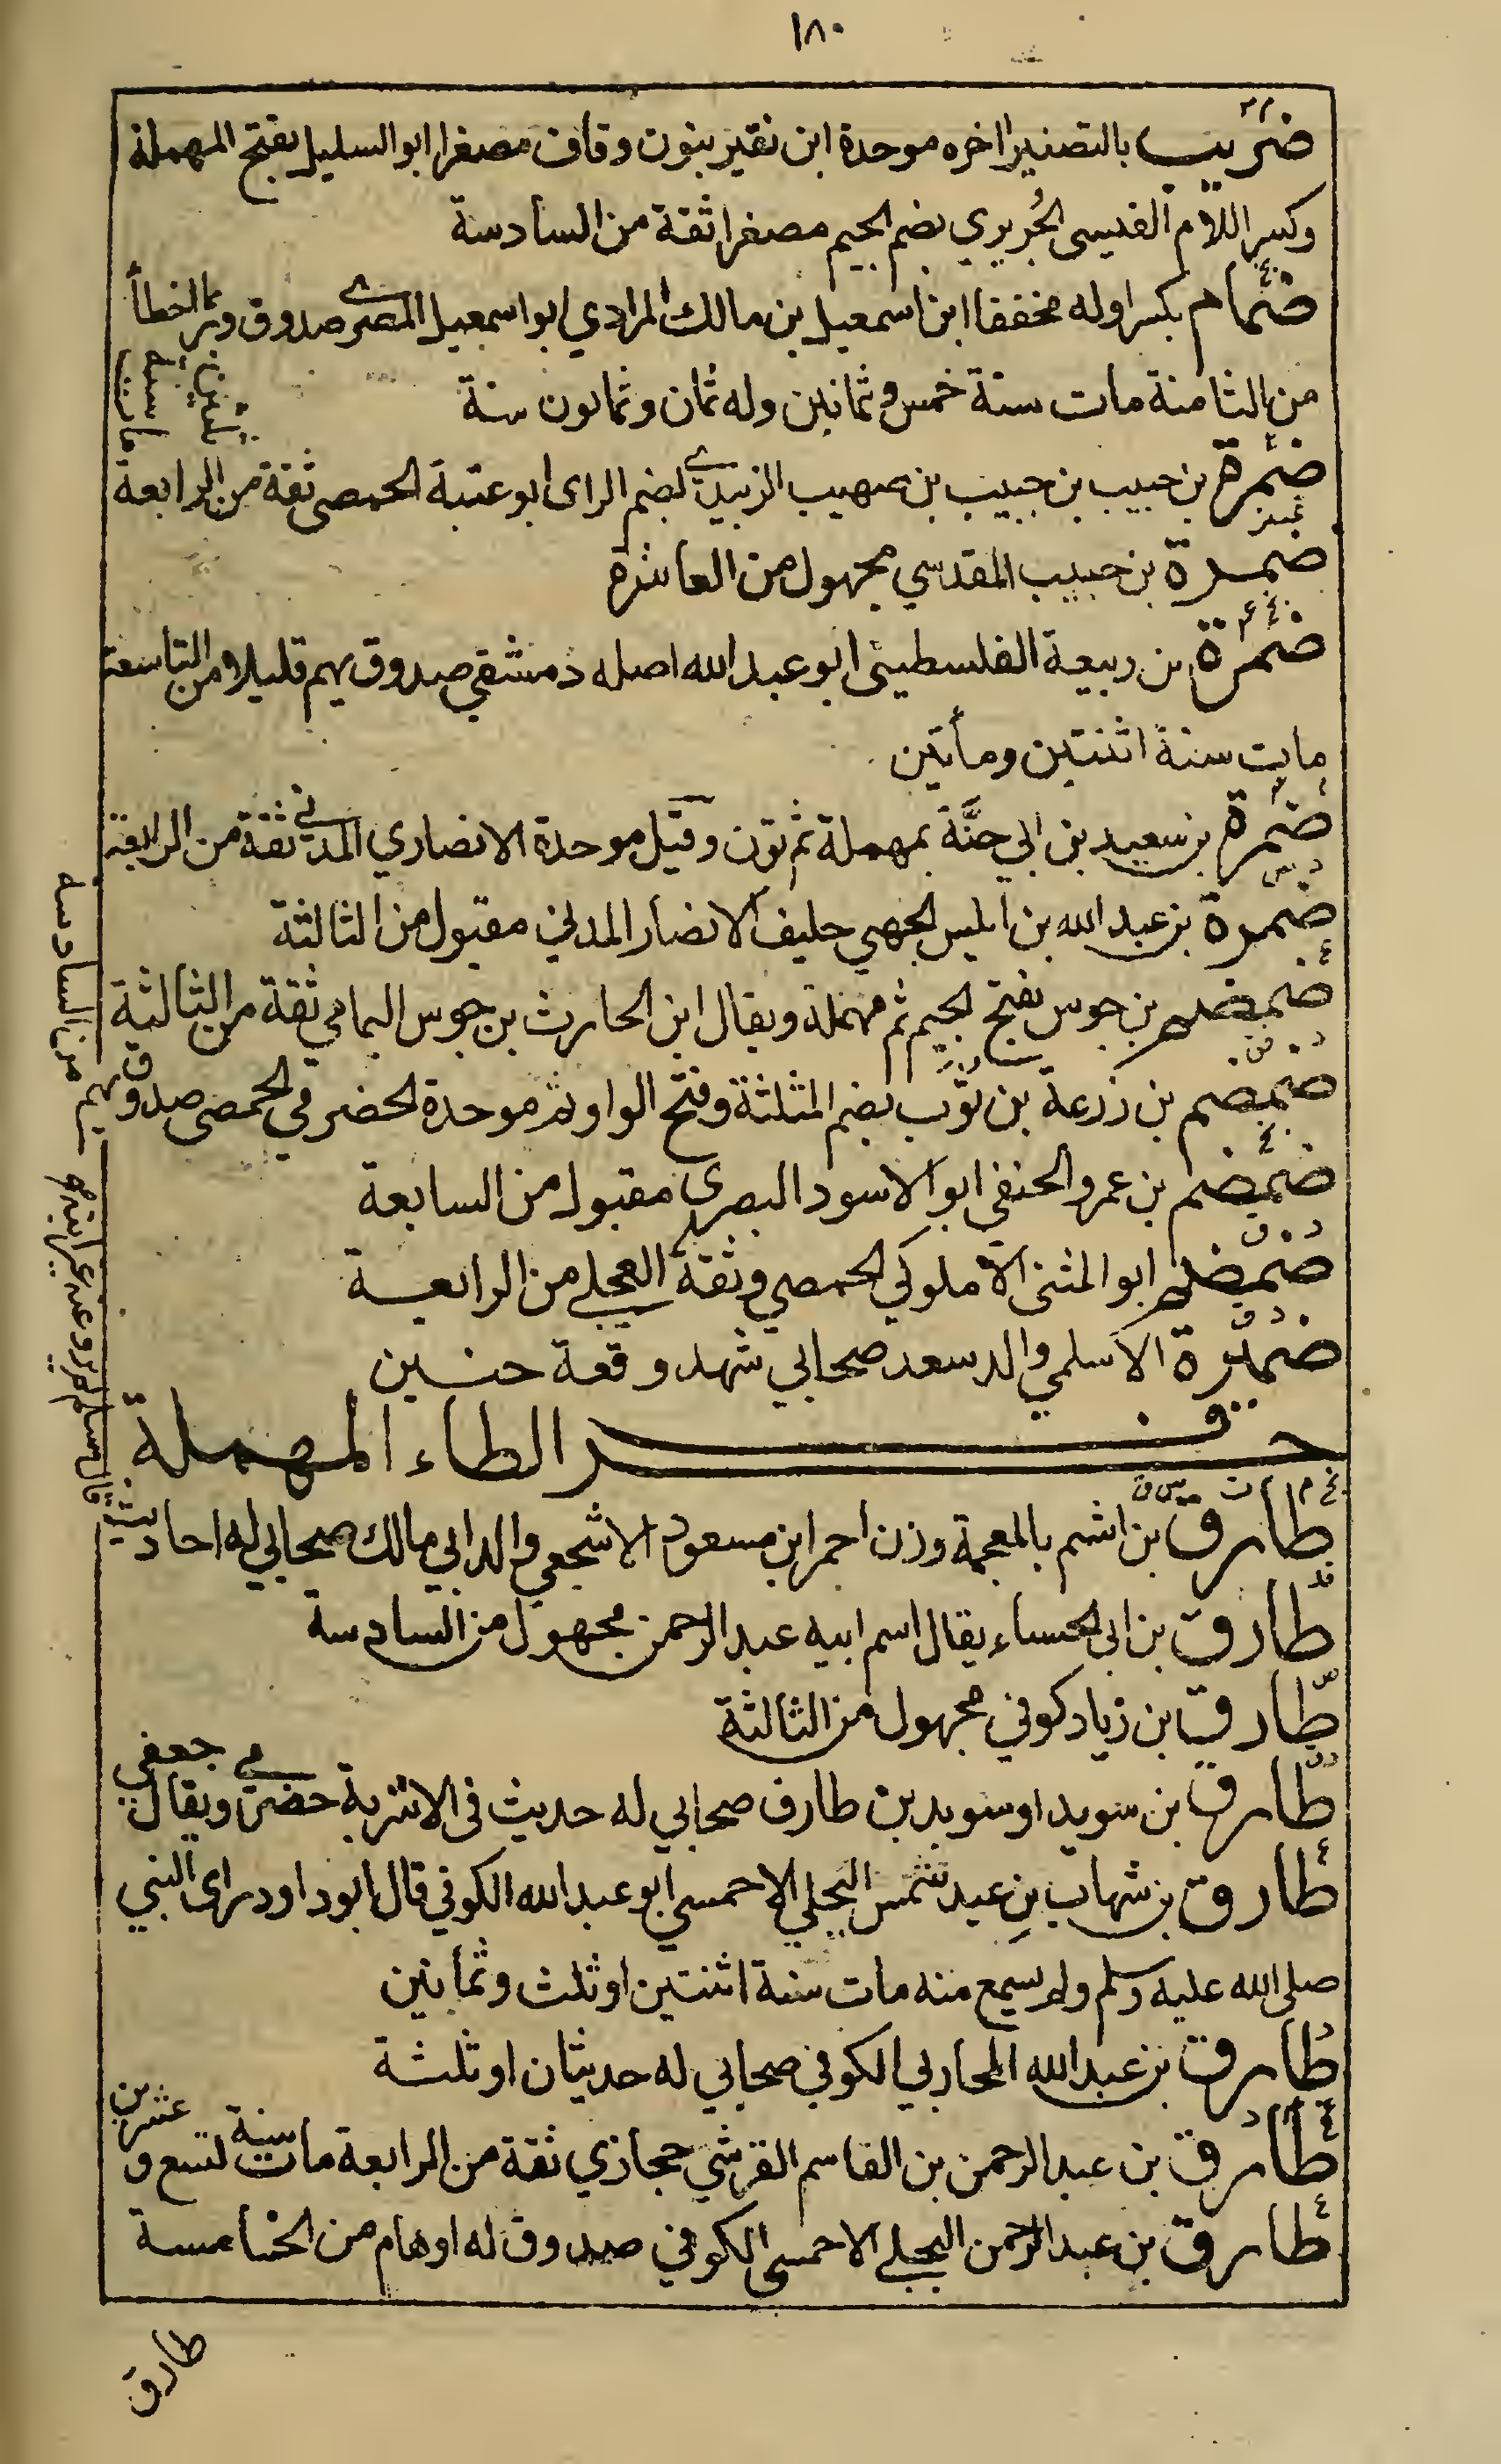 ١٨٠
ضريب بالتصغير اخره موحدة ابن نقير بنون وقاف مصغرا ابو السليل بفتح المهملة
وكسر اللام القيسى الجُريري بضم الجيم مصغرا ثقة من السادسة
ضمام بكسر اوله مخففا ابن اسمعيل بن مالك المرادي ابو اسمعيل المصرى صدوق ربما اخطأ
من الثامنة مات سنة خمس وثمانين وله ثمان وثمانون سنة
ضمرة بن حبيب بن صهيب الزبيدى بضم الزاى ابو عتبة الحمصى ثقة من الرابعة
تمييز
ضمرة بن حبيب المقدسي مجهول من العاشرة
بخ ٤
ضمرة بن ربيعة الفلسطينى ابو عبد الله اصله دمشقي صدوق يهم قليلا من التاسعة
مات سنة اثنتين ومأتين
ضمرة بن سعيد بن ابي حنَّة بمهملة ثم نون وقيل موحدة الانصاري المدنى ثقة من الرابعة
د س
ضمرة بن عبد الله بن انيس الجهني حليف الانصار المدني مقبول من الثالثة
٤
ضمضم بن جوس بفتح الجيم ثم مهملة ويقال ابن الحارث بن جوس اليمامي ثقة من الثالثة
د فق
ضمضم بن زرعة بن ثوب بضم المثلثة وفتح الواو ثم موحدة الحضرمي الحمصى صدوق يهم من السادسة
بخ
ضمضم بن عمرو الحنفي ابو الاسود البصرى مقبول من السابعة
د ق
ضمضم ابو المثنى الاملوكي الحمصي وثقة العجلى من الرابعة
د ق
ضميرة الاسلمي والد سعد صحابي شهد وقعة حنين
حرف الطاء المهملة
بخ م ت س ق
طارق بن اشيم بالمعجمة وزن احمر ابن مسعود الاشجعي والد ابي مالك صحابي له احاديث
قد
طارق بن ابى الحسناء يقال اسم ابيه عبد الرحمن مجهول من السادسة
ص
طارق بن زياد كوفي مجهول من الثالثة
د ق
طارق بن سويد او سويد بن طارق صحابي له حديث فى الاشربة حضرمى ويقال جعفي
ع
طارق بن شهاب بن عبد شمس البجلي الاحمسي ابو عبد الله الكوفي قال ابو داود راى النبي
صلى الله عليه وسلم ولم يسمع منه مات سنة اثنتين او ثلث وثمانين
طارق بن عبد الله المحاربي الكوفي صحابي له حديثان او ثلثة
طارق بن عبد الرحمن بن القاسم القرشي حجازي ثقة من الرابعة مات سنة تسع وعشرين
ع
طارق بن عبد الرحمن البجلى الاحمسى الكوفي صدوق له اوهام من الخامسة
طارق